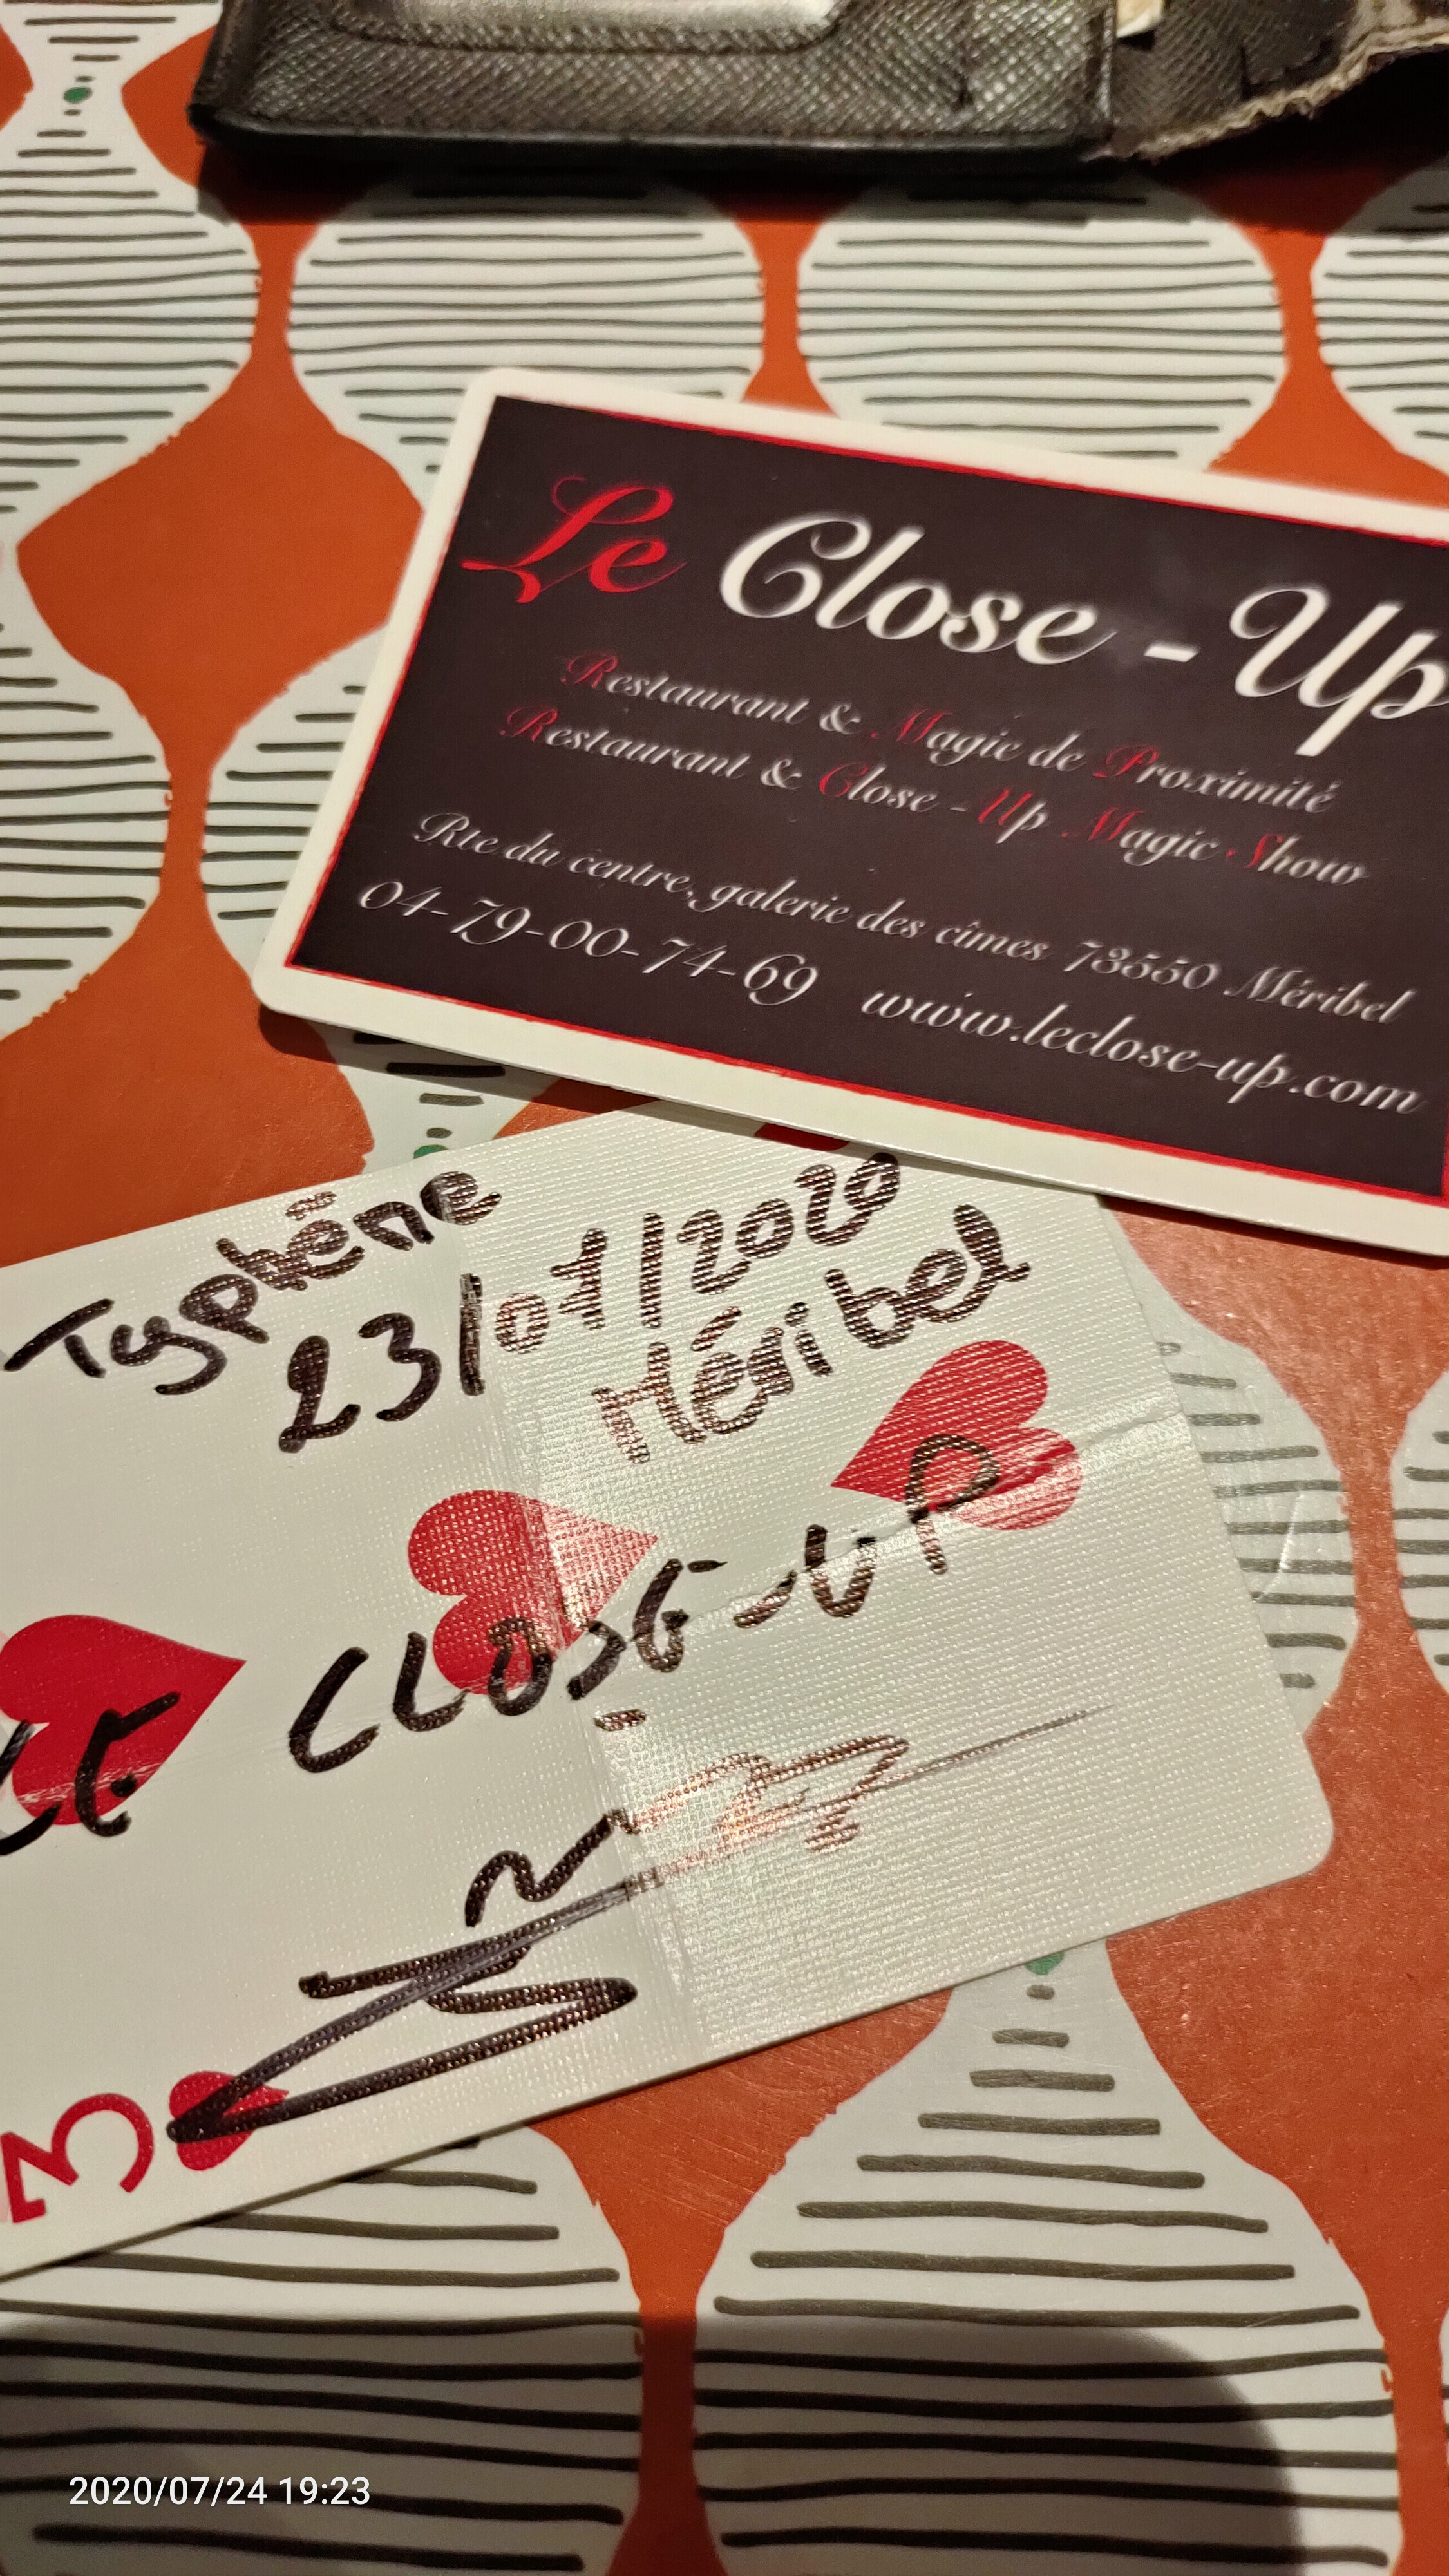 Le Close-Up
Restaurant & Magic de Proximité
Restaurant & Close-Up Magic Show
Rte du centre, galerie des cîmes 73550 Méribel
04-79-00-74-69 www.leclose-up.com
Typhène
23/01/2020
Méribel
LE CLOSE-UP
3
2020/07/24 19:23